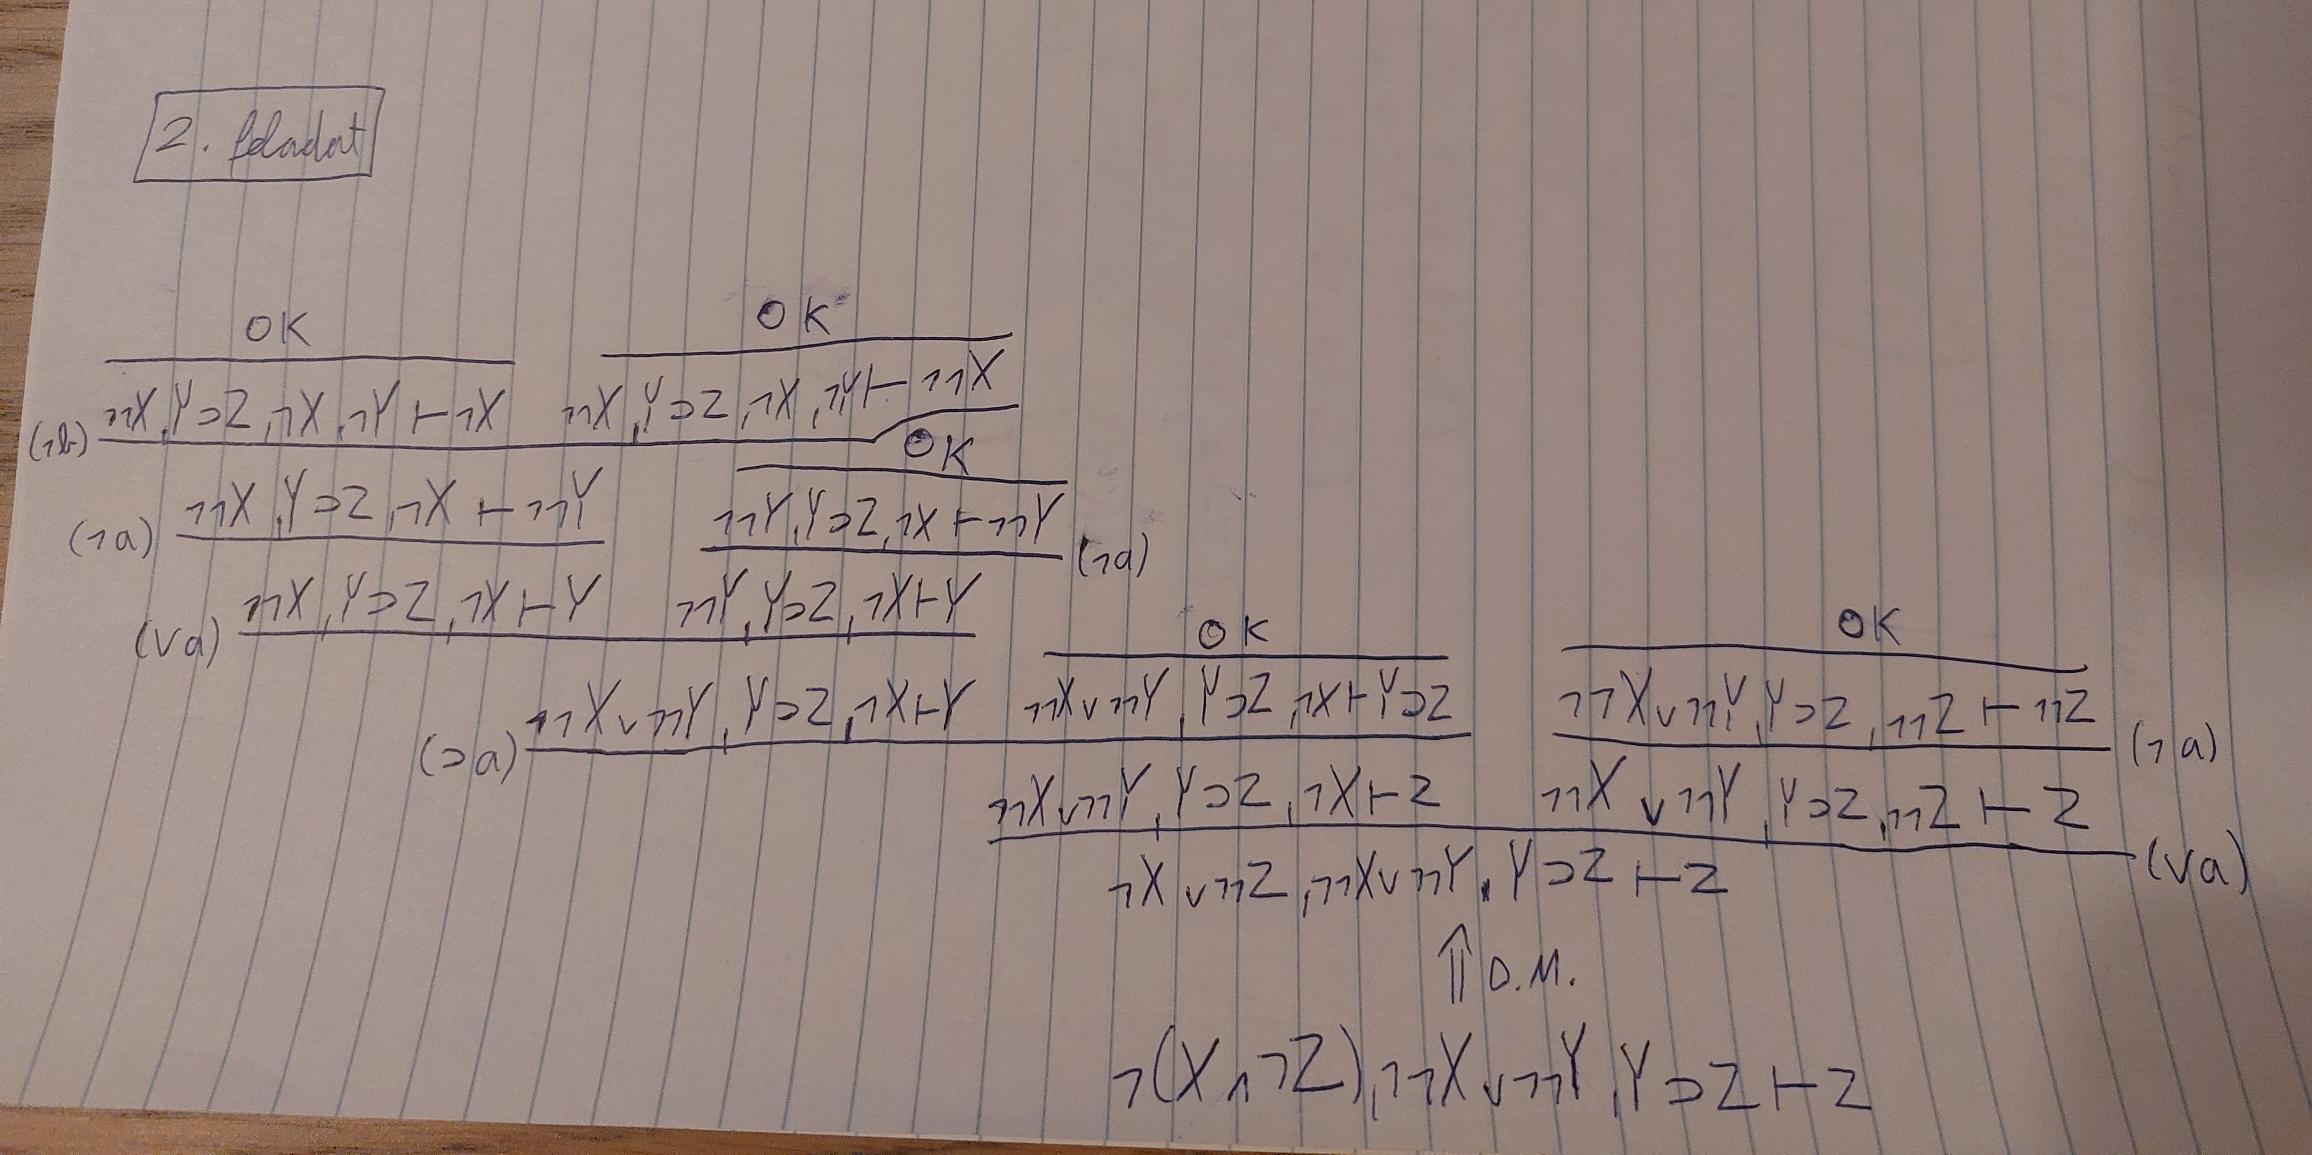 2. feladat
OK OK
¬¬X, Y⊃Z, ¬X, ¬Y ⊢ ¬X ¬¬X, Y⊃Z, ¬X, ¬Y ⊢ ¬¬X
(¬b) OK
¬¬X, Y⊃Z, ¬X ⊢ ¬¬Y ¬¬Y, Y⊃Z, ¬X ⊢ ¬¬Y
(¬a) (¬a)
¬¬X, Y⊃Z, ¬X ⊢ Y ¬¬Y, Y⊃Z, ¬X ⊢ Y
(∨a) OK OK
¬¬X∨¬¬Y, Y⊃Z, ¬X ⊢ Y ¬¬X∨¬¬Y, Y⊃Z, ¬X ⊢ Y⊃Z ¬¬X∨¬¬Y, Y⊃Z, ¬¬Z ⊢ ¬¬Z
(⊃a) (¬a)
¬¬X∨¬¬Y, Y⊃Z, ¬X ⊢ Z ¬¬X∨¬¬Y, Y⊃Z, ¬¬Z ⊢ Z
(∨a)
¬X∨¬¬Z, ¬¬X∨¬¬Y, Y⊃Z ⊢ Z
⇑ D.M.
¬(X∧¬Z), ¬¬X∨¬¬Y, Y⊃Z ⊢ Z